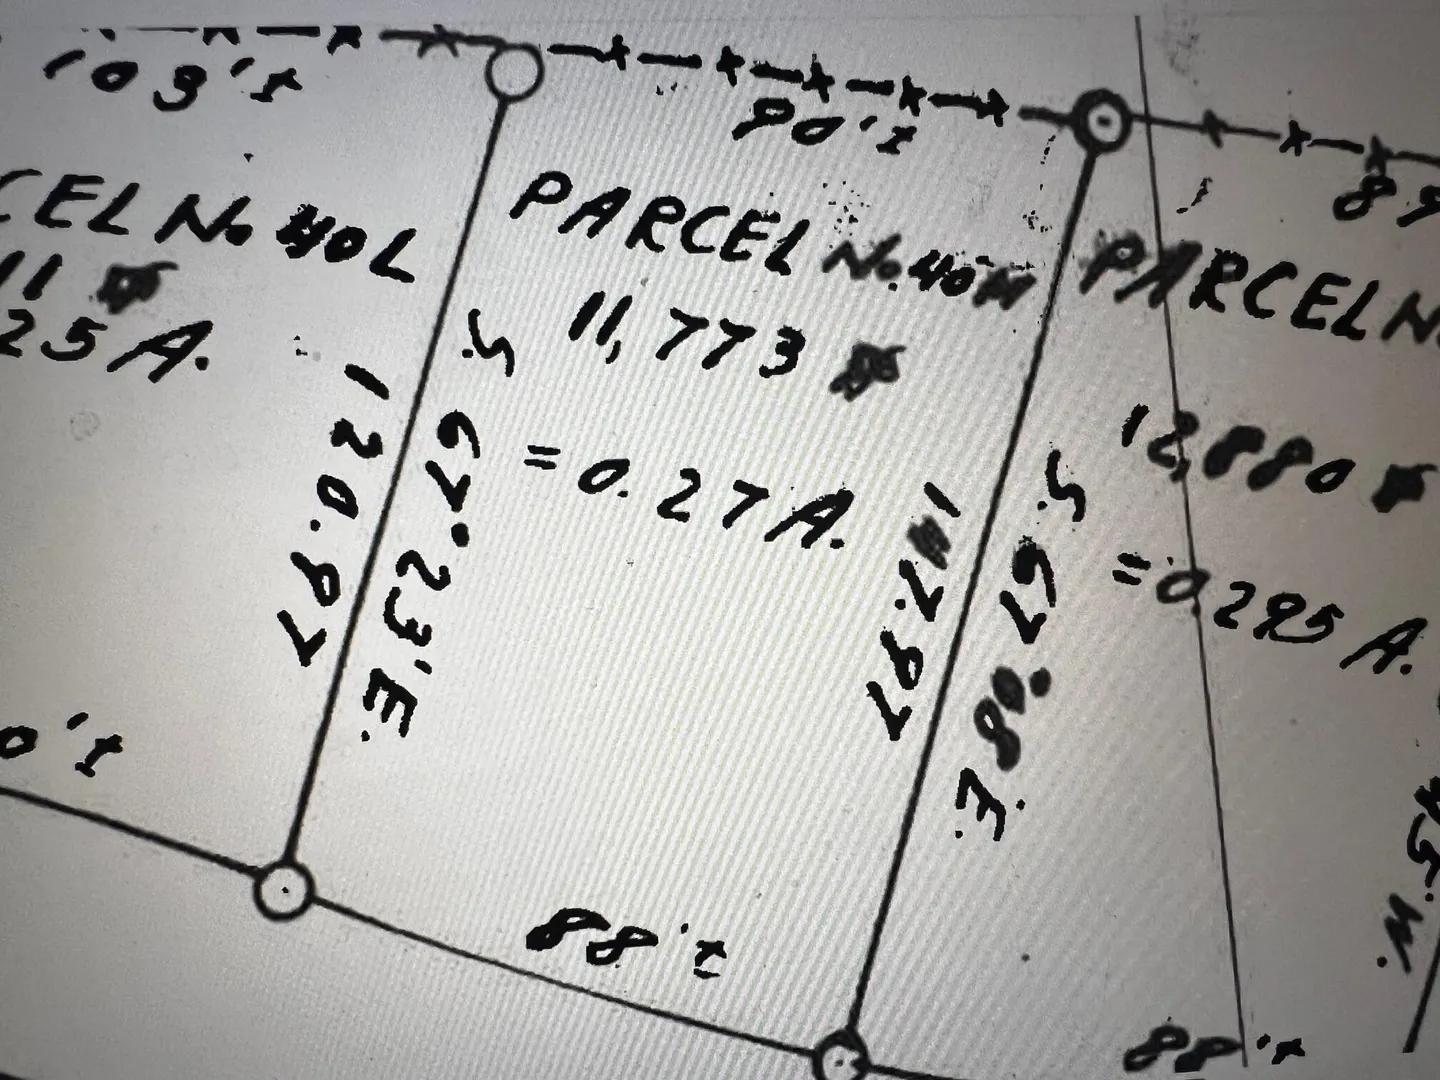 103'.±
90'.±
89
CEL No. 40L
11
25 A.
PARCEL No. 40M
11,773
= 0.27 A.
PARCEL N
12,880
= 0.295 A.
120.97
S. 67° 23' E.
S. 67°
E.
0'.±
88'.±
88'.±
W.